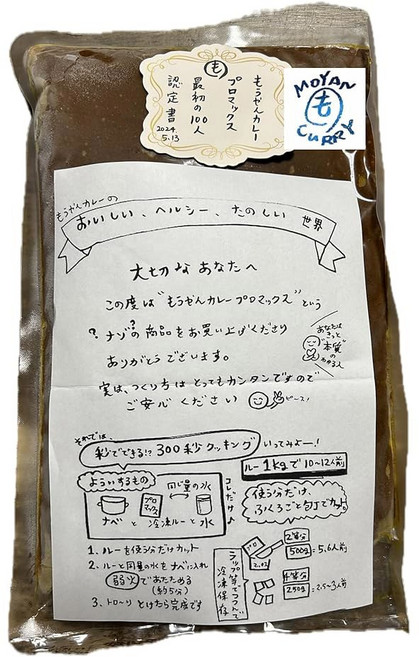 もうやんカレー
プロマックス
最初の100人
認定書
2024.
5.13
も
MOYAN
も
CURRY
もうやんカレーの
おいしい、ヘルシー、たのしい 世界
大切なあなたへ
この度は"もうやんカレープロマックス"という
？ナゾ？の商品をお買い上げくださり
ありがとうございます。
実は、つくり方はとってもカンタンですので
ご安心ください ピース!
あなたは
きっと
"本質"の
わかる人
それでは、
秒でできる!? 300秒クッキング いってみよー!
ルー1kgで10〜12人前
よういするもの
同じ量の水
プロ
マックス
ナベと冷凍ルーと水
コレだけ♪
使う分だけ、
ふくろごと包丁でカット。
1. ルーを使う分だけカット
2. ルーと同量の水をナベに入れ
弱火であたためる
(約5分)
3. トローリとけたら完成です
ラップ等でつつんで
冷凍保存
プロ
2等分
500g=5,6人前
4等分
250g=2.5〜3人前